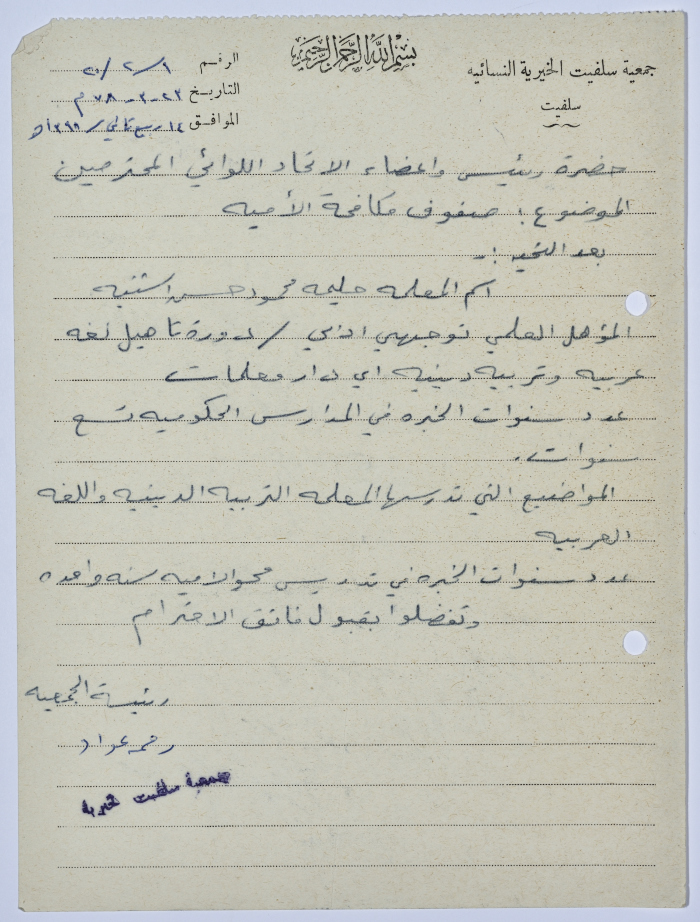 بسم الله الرحمن الرحيم
جمعية سلفيت الخيرية النسائيه
سلفيت
الرقم ٢٠/٢/١
التاريخ ٢٣-٣-٧٨ م
الموافق ١٤ ربيع ثاني / ١٣٩٨ هـ
حضرة رئيس واعضاء الاتحاد اللوائي المحترمين
الموضوع : صفوف مكافحة الأميه
بعد التحيه :-
اسم المعلمه حليمه محمود حسن اشتيه
المؤهل العلمي توجيهي ادبي / دورة تأهيل لغه
عربيه وتربيه دينيه اي دار معلمات
عدد سنوات الخبره في المدارس الحكوميه تسع
سنوات .
المواضيع التي تدرسها المعلمه التربيه الدينيه واللغه
العربيه
عدد سنوات الخبره في تدريس محو الاميه سنه واحده
وتفضلوا بقبول فائق الاحترام
رئيسة الجمعيه
رحمه عواد
جمعية سلفيت الخيرية